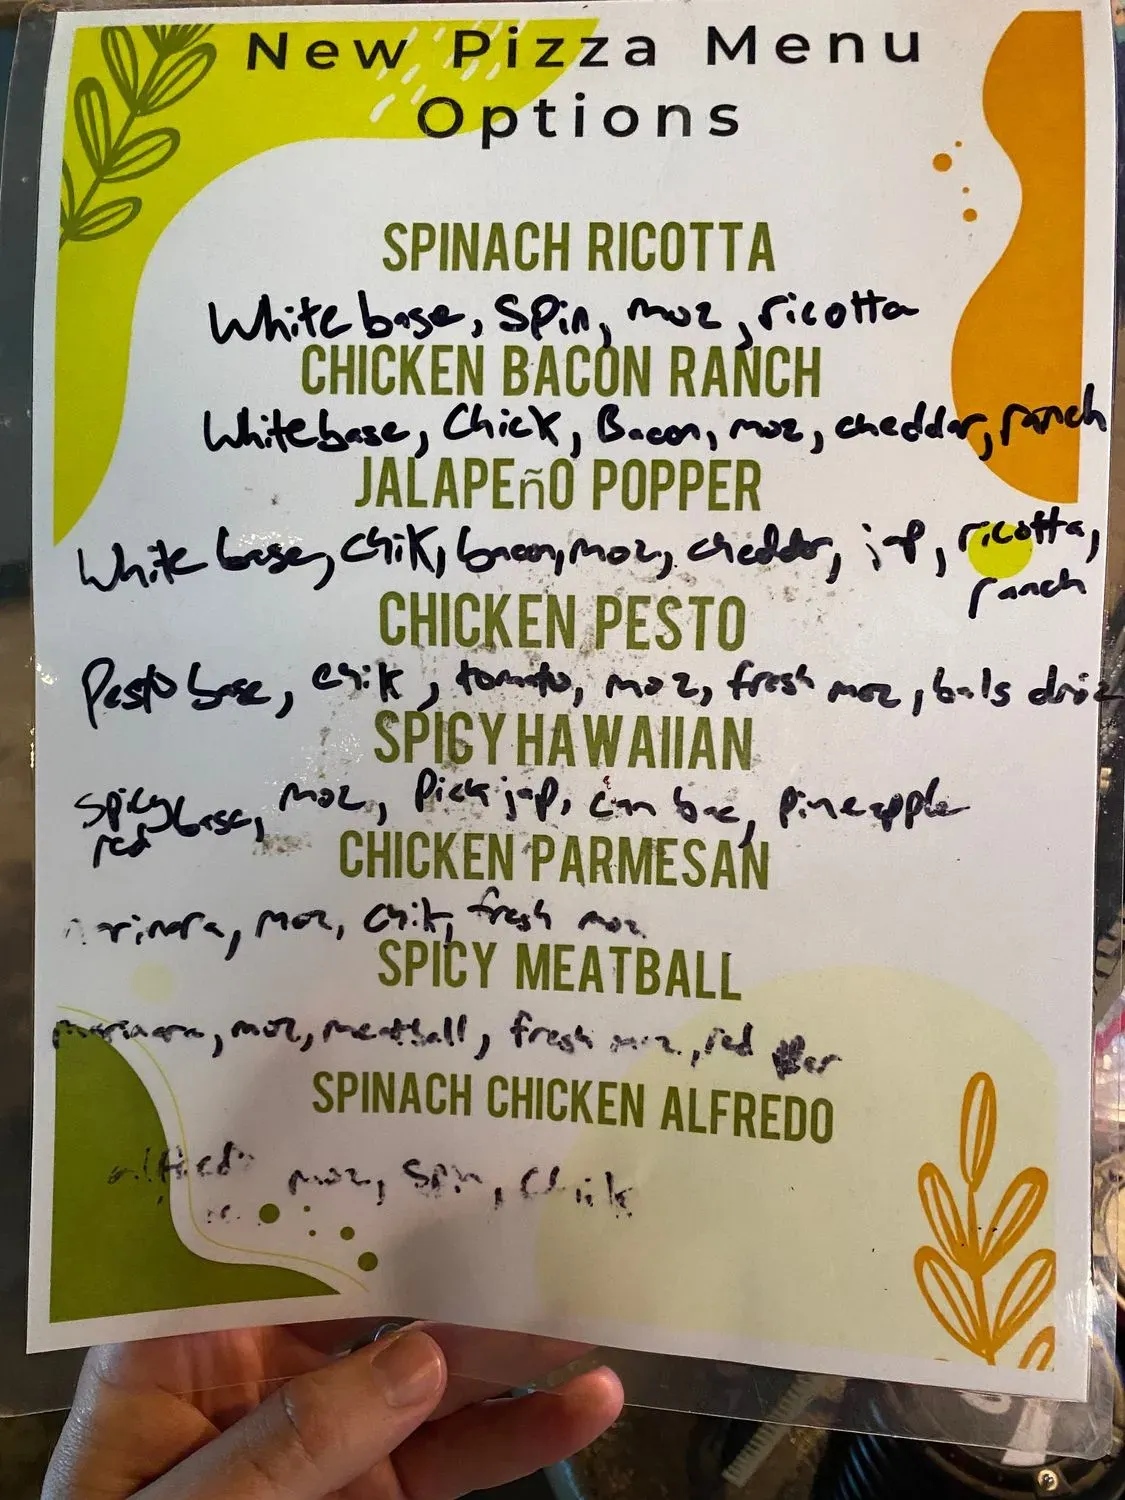 New Pizza Menu
Options
SPINACH RICOTTA
White base, Spin, moz, ricotta
CHICKEN BACON RANCH
White base, Chick, Bacon, moz, cheddar, ranch
JALAPEñO POPPER
White base, chik, bacon, moz, cheddar, jap, ricotta,
ranch
CHICKEN PESTO
Pesto base, chik, tomato, moz, fresh moz, bals driz
SPICY HAWAIIAN
spicy base, moz, Pick jap, can bac, pineapple
red
CHICKEN PARMESAN
moz, chik, fresh moz
SPICY MEATBALL
moz, meatball, fresh moz, red
SPINACH CHICKEN ALFREDO
moz, spin, chik